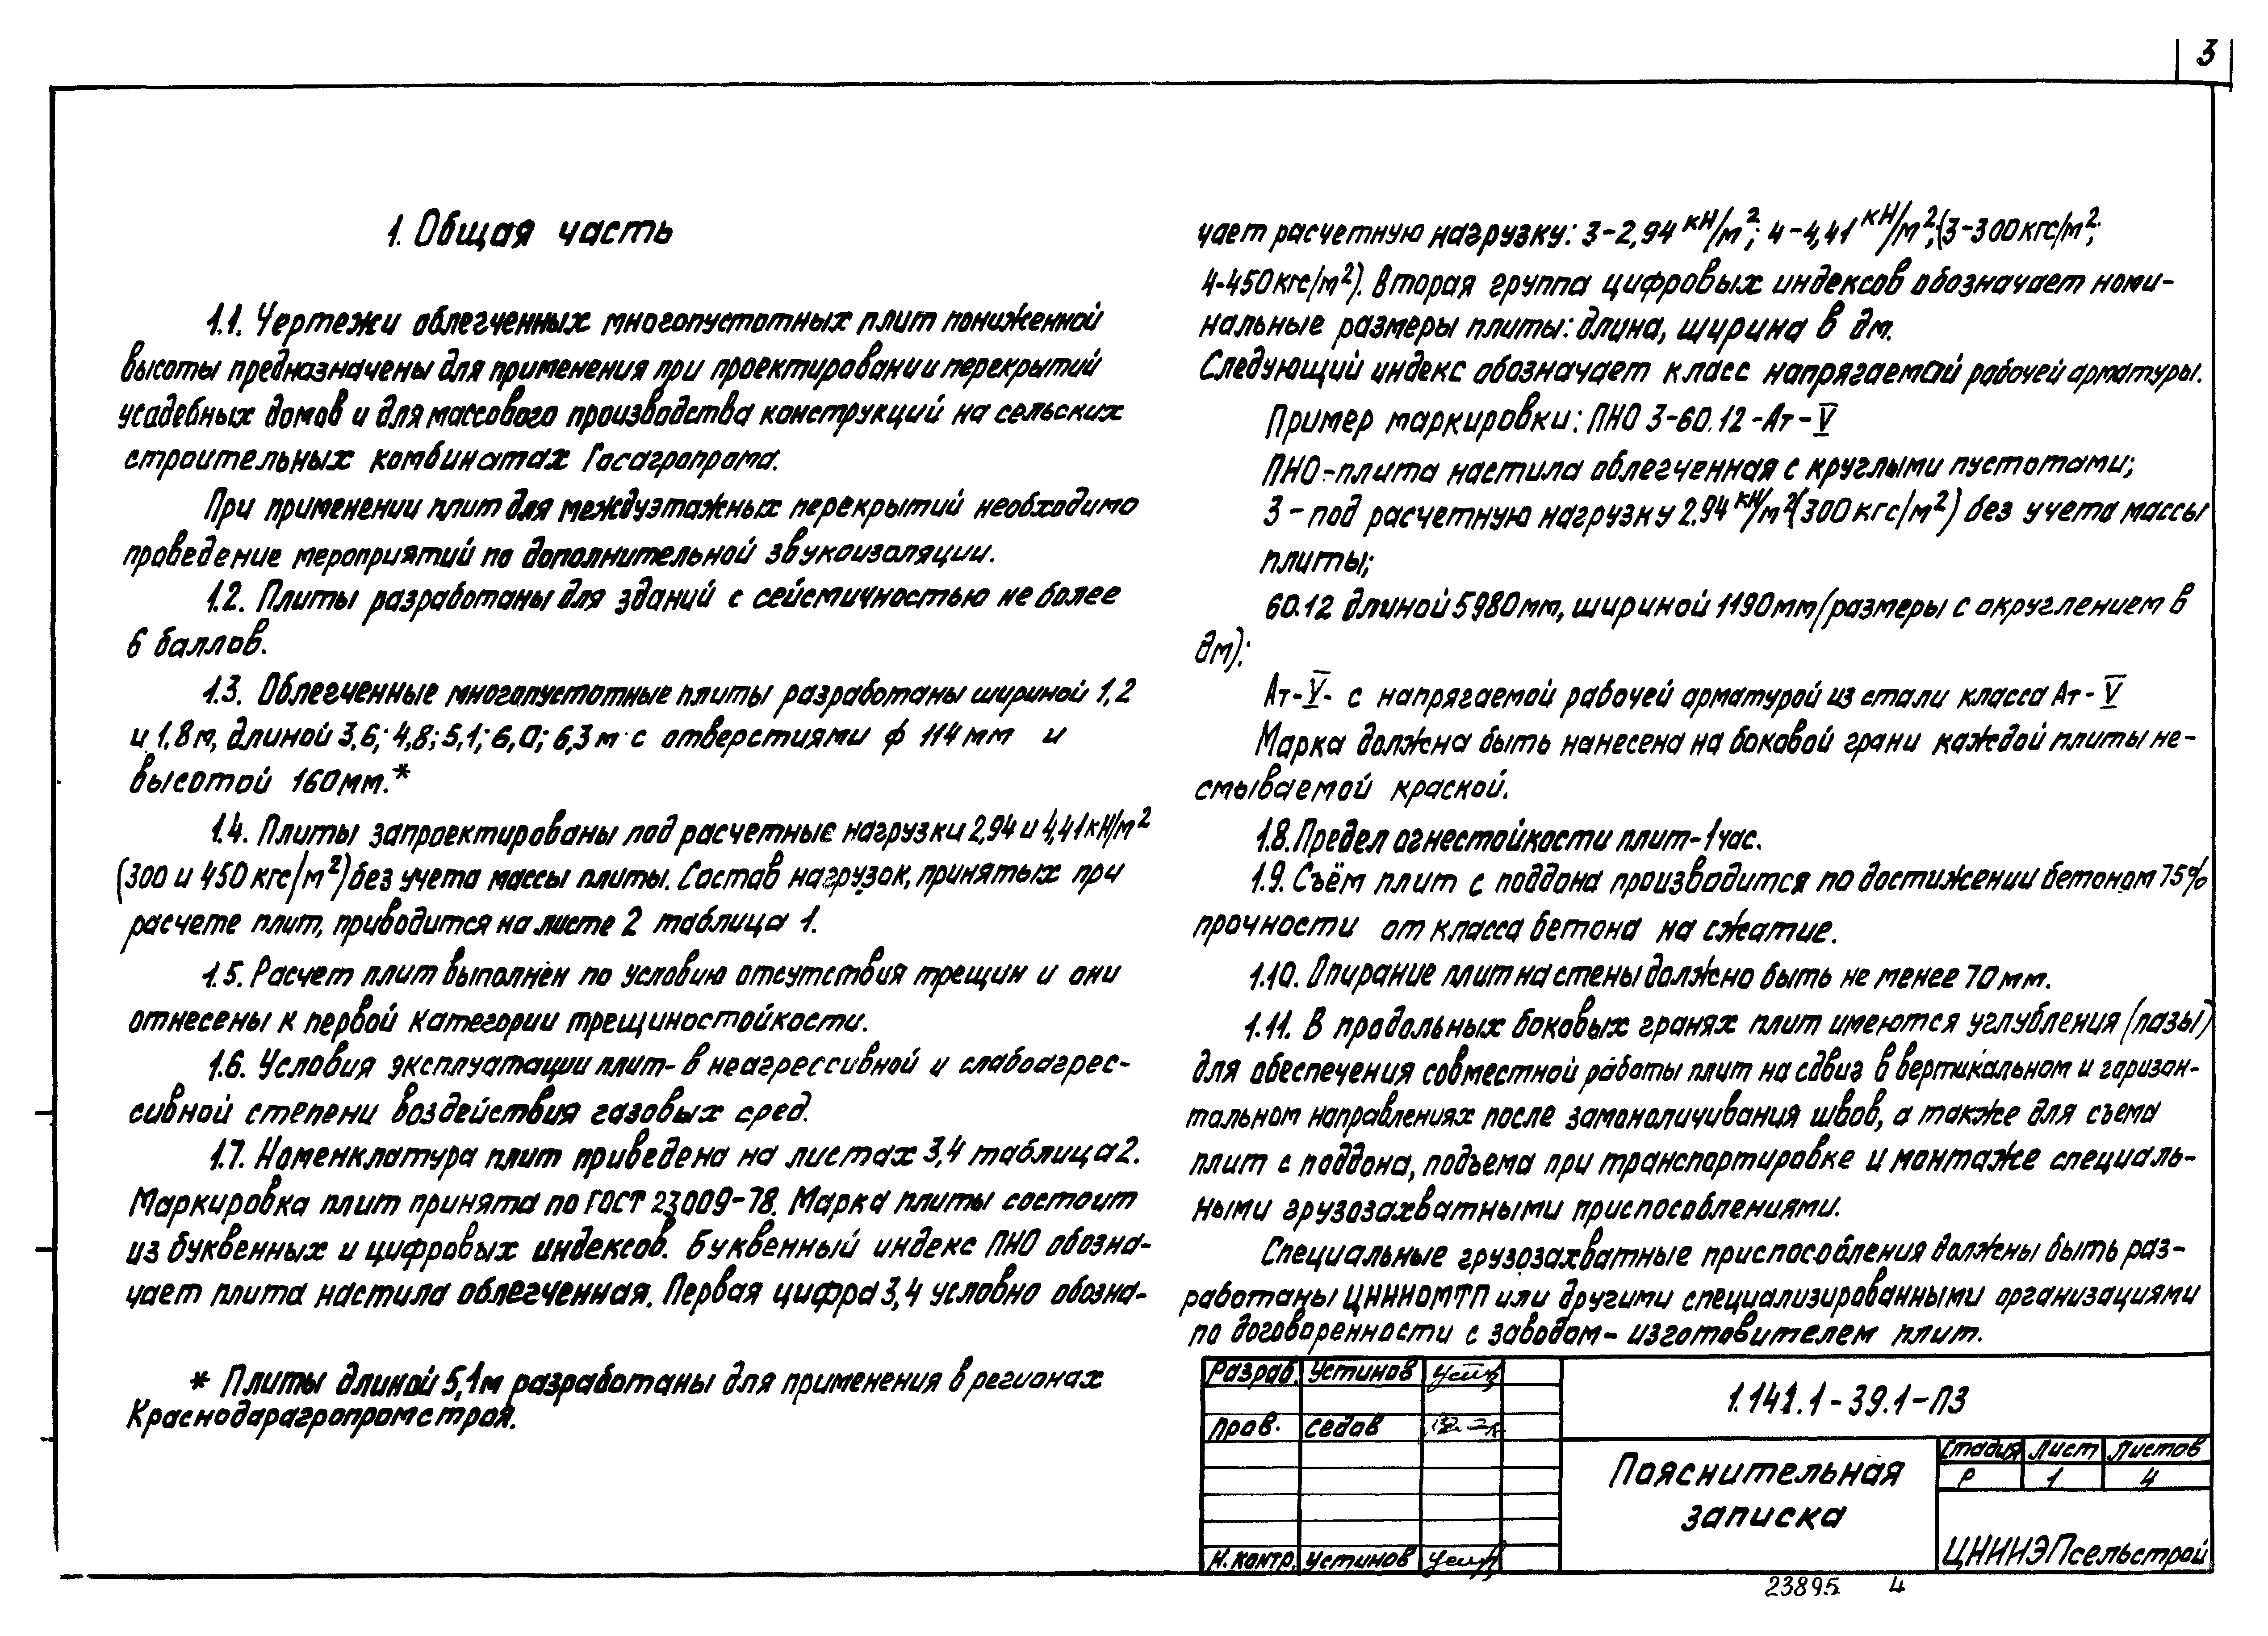 3
1. Общая часть
1.1. Чертежи облегченных многопустотных плит пониженной
высоты предназначены для применения при проектировании перекрытий
усадебных домов и для массового производства конструкций на сельских
строительных комбинатах Госагропрома.
При применении плит для междуэтажных перекрытий необходимо
проведение мероприятий по дополнительной звукоизоляции.
1.2. Плиты разработаны для зданий с сейсмичностью не более
6 баллов.
1.3. Облегченные многопустотные плиты разработаны шириной 1,2
и 1,8м, длиной 3,6; 4,8; 5,1; 6,0; 6,3м с отверстиями ф 114мм и
высотой 160мм.*
1.4. Плиты запроектированы под расчетные нагрузки 2,94 и 4,41кН/м²
(300 и 450 кгс/м²) без учета массы плиты. Состав нагрузок, принятых при
расчете плит, приводится на листе 2 таблица 1.
1.5. Расчет плит выполнен по условию отсутствия трещин и они
отнесены к первой категории трещиностойкости.
1.6. Условия эксплуатации плит- в неагрессивной и слабоагрес-
сивной степени воздействия газовых сред.
1.7. Номенклатура плит приведена на листах 3,4 таблица 2.
Маркировка плит принята по ГОСТ 23009-78. Марка плиты состоит
из буквенных и цифровых индексов. Буквенный индекс ПНО обозна-
чает плита настила облегченная. Первая цифра 3,4 условно обозна-
* Плиты длиной 5,1м разработаны для применения в регионах
Краснодарагропромстроя.
чает расчетную нагрузку: 3-2,94 кН/м²; 4-4,41 кН/м²; (3-300кгс/м²;
4-450кгс/м²). Вторая группа цифровых индексов обозначает номи-
нальные размеры плиты: длина, ширина в дм.
Следующий индекс обозначает класс напрягаемой рабочей арматуры.
Пример маркировки: ПНО 3-60.12-Ат-V
ПНО-плита настила облегченная с круглыми пустотами;
3 - под расчетную нагрузку 2,94 кН/м² (300 кгс/м²) без учета массы
плиты;
60.12 длиной 5980мм, шириной 1190мм (размеры с округлением в
дм);
Ат-V- с напрягаемой рабочей арматурой из стали класса Ат-V
Марка должна быть нанесена на боковой грани каждой плиты не-
смываемой краской.
1.8. Предел огнестойкости плит-1час.
1.9. Съём плит с поддона производится по достижении бетоном 75%
прочности от класса бетона на сжатие.
1.10. Опирание плит на стены должно быть не менее 70мм.
1.11. В продольных боковых гранях плит имеются углубления (пазы)
для обеспечения совместной работы плит на сдвиг в вертикальном и горизон-
тальном направлениях после замоноличивания швов, а также для съема
плит с поддона, подъема при транспортировке и монтаже специаль-
ными грузозахватными приспособлениями.
Специальные грузозахватные приспособления должны быть раз-
работаны ЦНИИОМТП или другими специализированными организациями
по договоренности с заводом-изготовителем плит.
Разраб. Устинов
Пров. Седов
Н.контр. Устинов
1.141.1-39.1-ПЗ
Пояснительная
записка
Стадия Лист Листов
Р 1 4
ЦНИИЭПсельстрой
23895 4